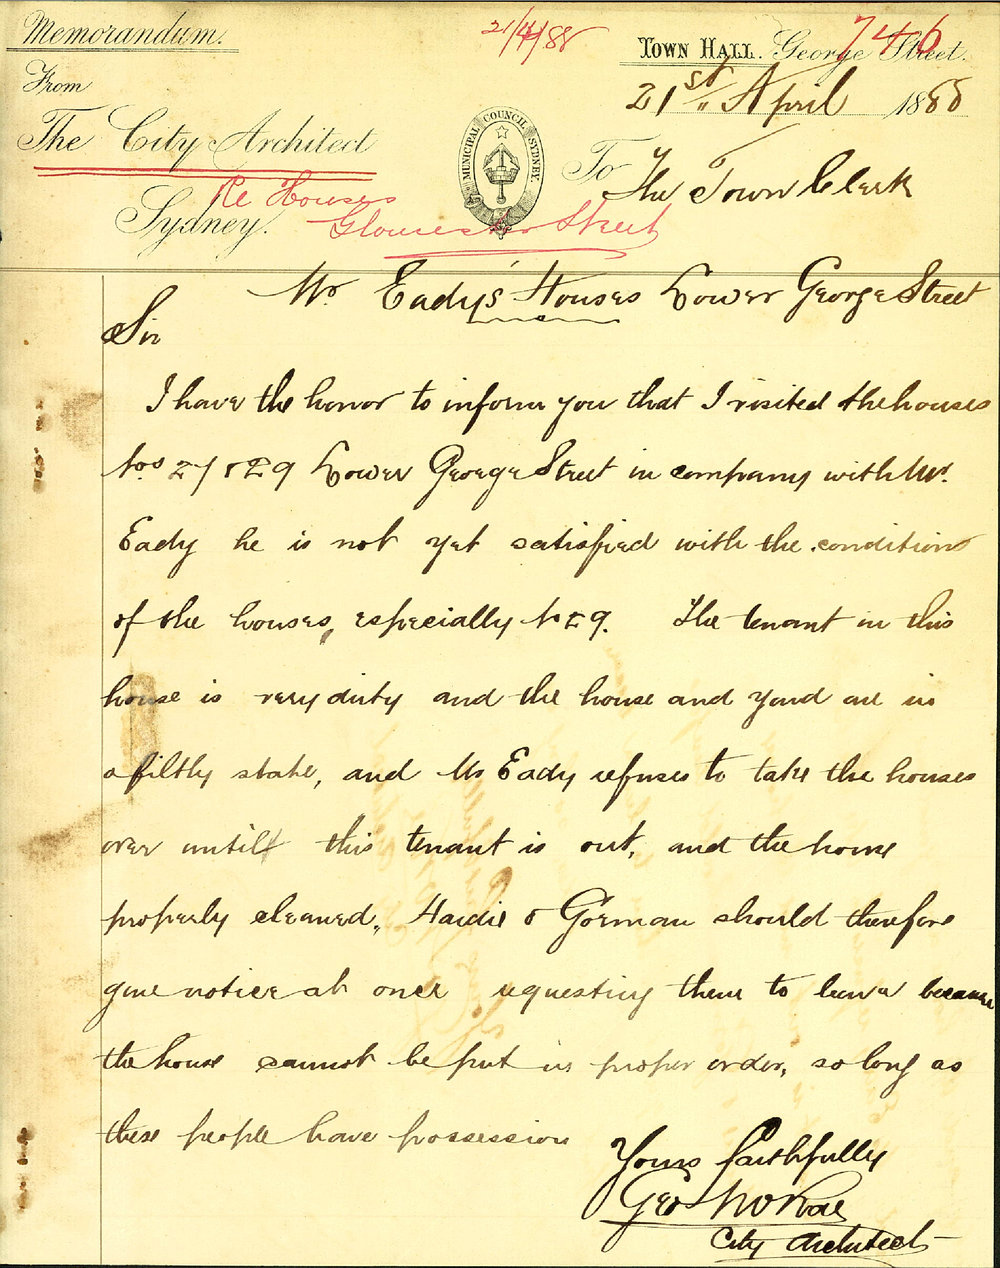 Memorandum.
21/4/88
7446
Town Hall. George Street.
From
21st April 1888
The City Architect
MUNICIPAL COUNCIL SYDNEY
To The Town Clerk
Re Houses
Sydney.
Gloucester Street
Mr Eady's Houses Lower George Street
Sir
I have the honor to inform you that I visited the houses
Nos 27 & 29 Lower George Street in company with Mr.
Eady he is not yet satisfied with the condition
of the houses, especially No 29. The tenant in this
house is very dirty and the house and yard are in
a filthy state, and Mr Eady refuses to take the houses
over untill this tenant is out, and the house
properly cleaned, Hardie & Gorman should therefore
give notice at once requesting them to leave because
the house cannot be put in proper order, so long as
these people have possession
Yours faithfully
Geo McRae
City Architect